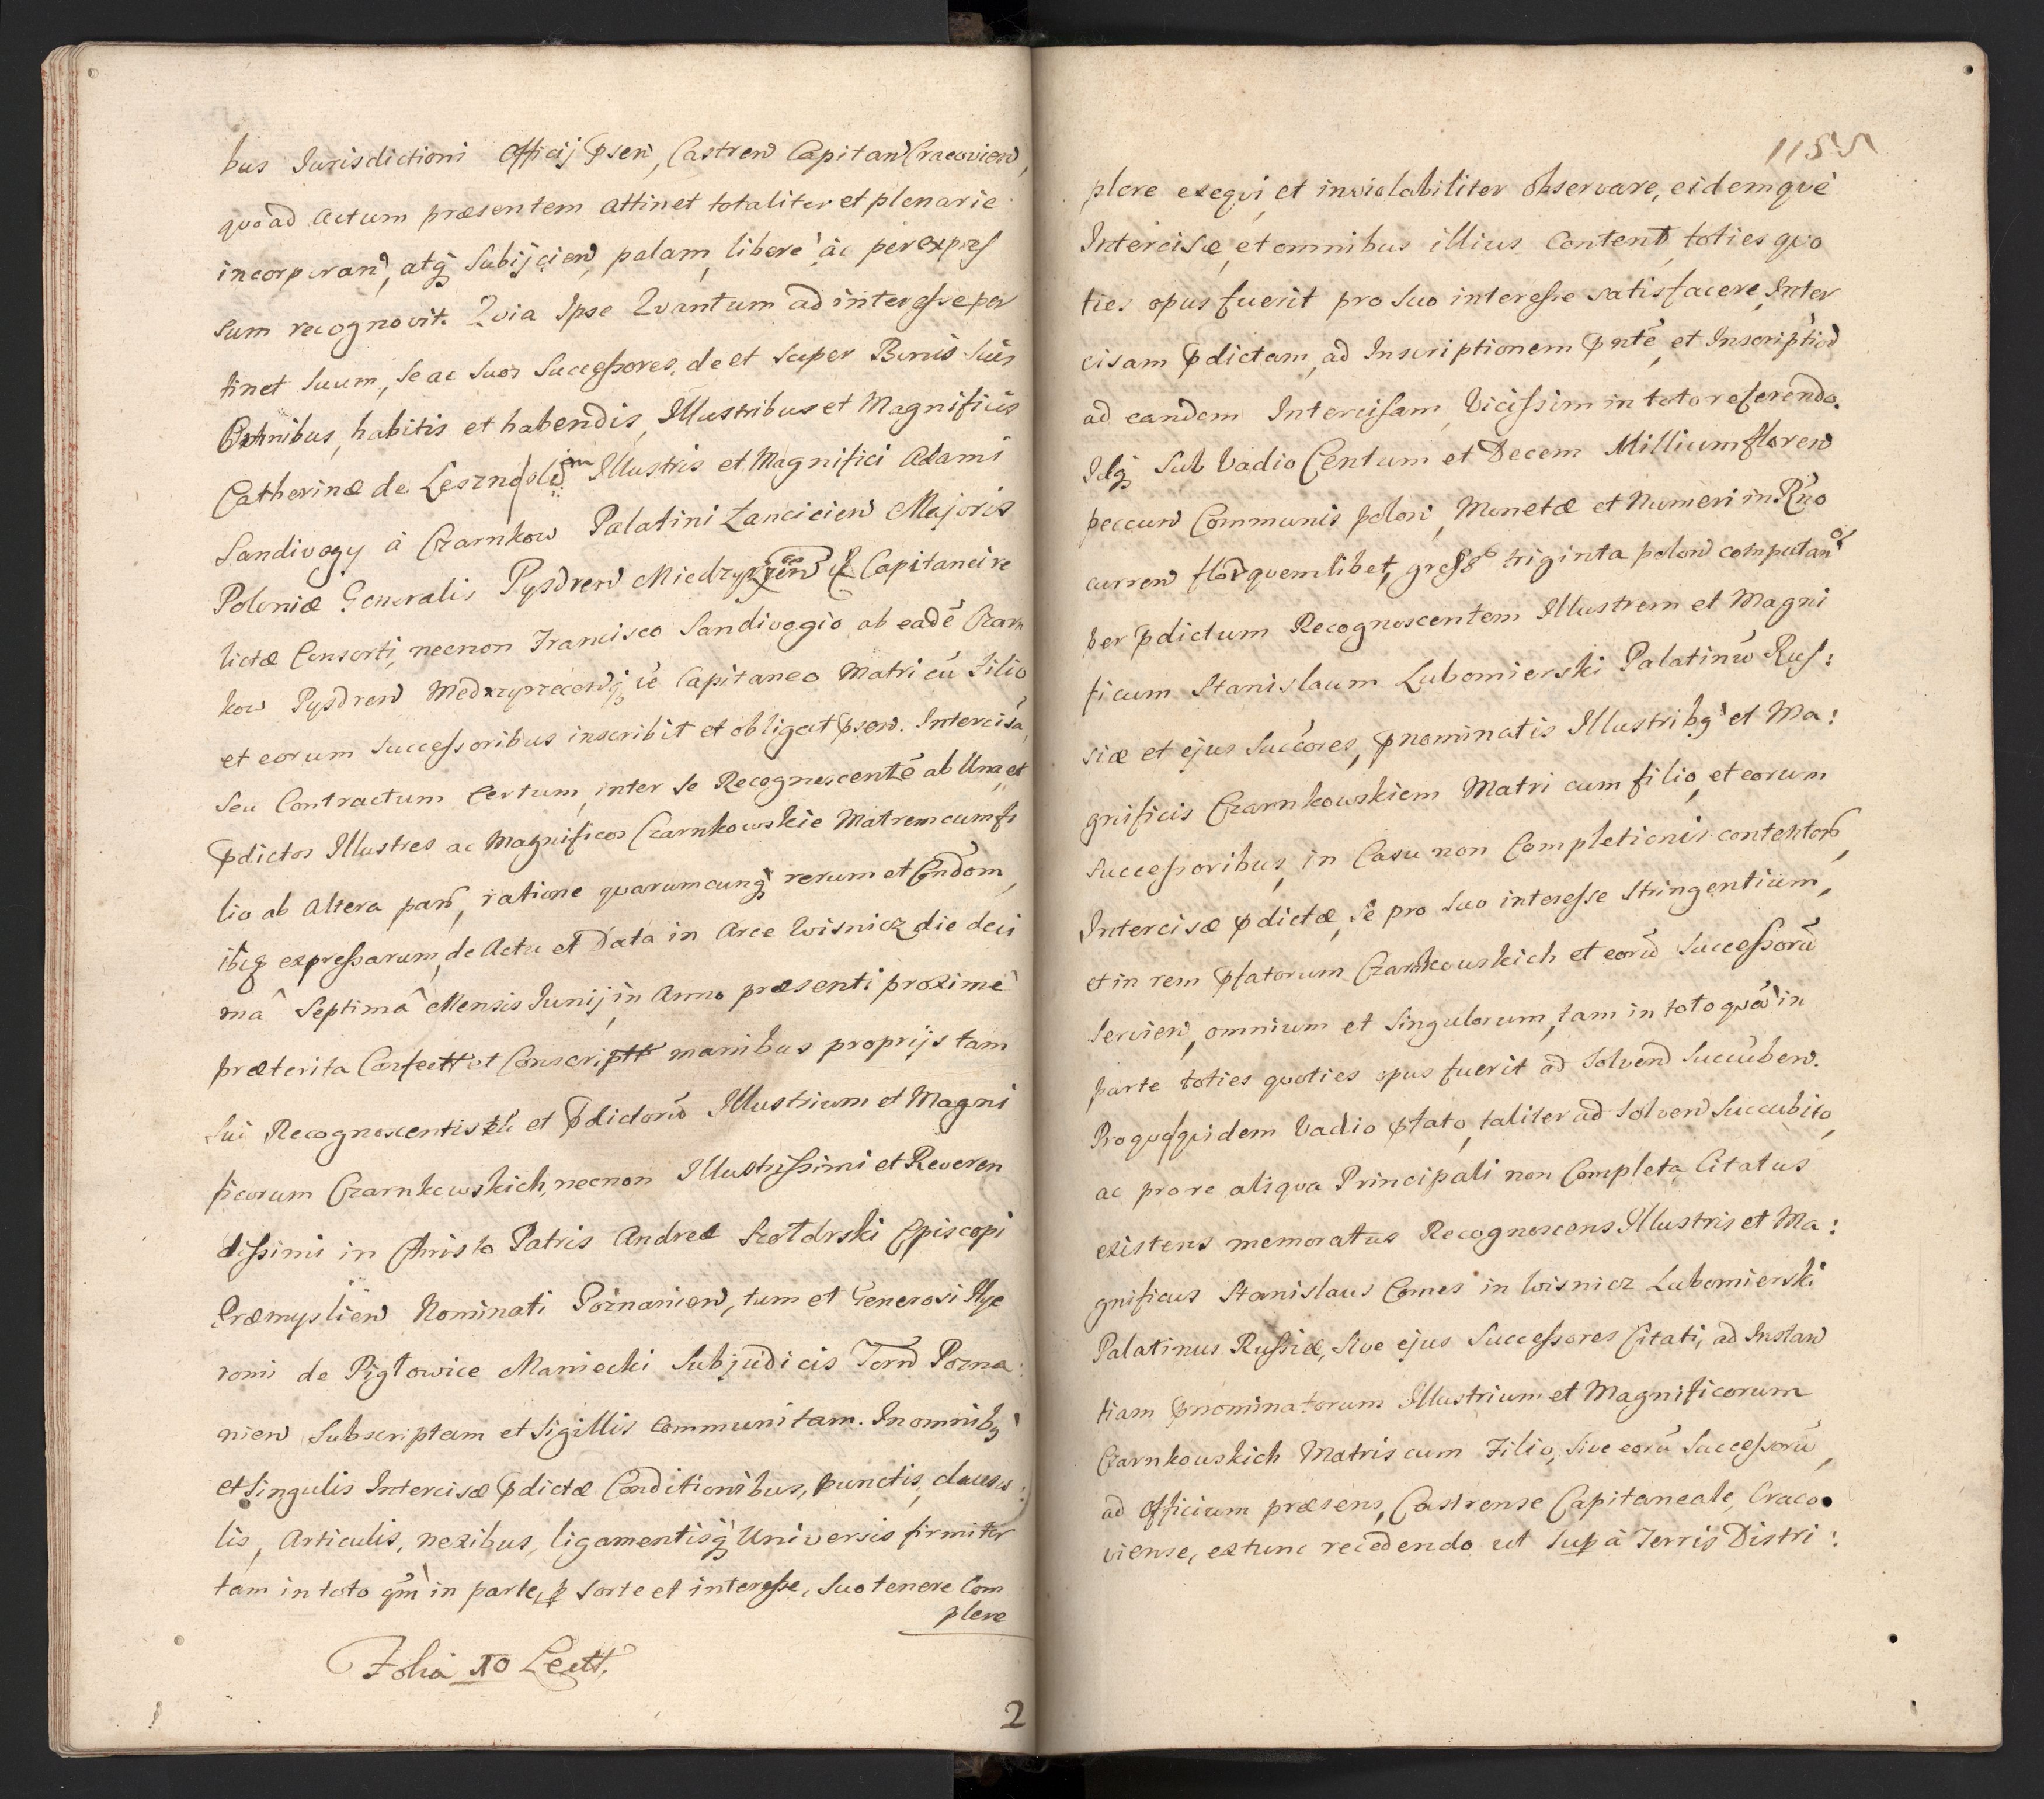 bus Jurisdictioni Officij pñsen, Castren Capitan Cracovien,
quoad Actum præsentem attinet totaliter et plenarie
incorporan, atq́ Subijcien, palam, libere ac per expres
sum recognovit. Quia Ipse Quantum ad interesse per
tinet Suum, Se ac Suos Successores, de et Super Bonis Suis
Omnibus, habitis et habendis, Illustribus et Magnificis
Catherinæ de Leszno, olim Illustris et Magnifici Adami
Sandivogy à Czarnkow Palatini Lancicien Majoris
Poloniæ Generalis Pysdren Miedzyrzecen Capitanei re
lictæ Consorti, necnon Francisco Sandivogio ab eadē Czarn
kow Pysdren Medzyrzecenq́ ue Capitaneo Matri cū Filio
et eorum Successoribus inscribit et obligat pñsen. Intercisā,
Seu Contractum Certum, inter Se Recognoscentē ab Una, et
pdictos Illustres ac Magnificos Czarnkowskie Matrem cum fi
lio ab Altera part, ratione quarumcunq́ rerum et Cōndom,
ibiq́ expressarum, de Actu et Data in Arce Wisnicz die deci
mâ Septimâ Mensis Junij, in Anno præsenti proximè
præterita Confectt et Conscriptt manibus proprijs tam
Sui Recognoscentis et pdictorū Illustrium et Magni
ficorum Czarnkowskich, necnon Illustrissimi et Reveren
dissimi in Christo Patris Andreæ Szołdrski Episcopi
Præmyslien Nominati Poznanien, tum et Generosi Hye
ronimi de Pigłowice Maniecki Subjudicis Terrn Pozna:
nien Subscriptam et Sigillis Communitam. In omnibq́
et Singulis Intercisæ pdictæ Conditionibus, Punctis, clausu:
lis, Articulis, nexibus, ligamentisq́ Universis firmiter
tam in toto qm̀ in parte, p Sorte et interesse, Suo tenere Com
plere
Folia 10 Lectt.
2
1155
plere exequi, et inviolabiliter observare, eidemquè
Intercisæ, et omnibus illius Content, toties quo
ties opus fuerit pro Suo interesse satisfacere, Inter
cisam pdictam, ad Inscriptionem pntē, et Inscriptiōn
ad eandem Intercisam, Vicissim in toto referendo.
Idq́ Sub Vadio Centum et Decem Millium floren
peccun Communis polon, Monetæ et Numeri in Rño
curren, flor quemlibet, gross triginta polon computan
per pdictum Recognoscentem Illustrem et Magni
ficum Stanislaum Lubomierski Palatinū Rus:
siæ et ejus Succores, pnominatis Illustribq́ et Ma:
gnificis Czarnkowskiem Matri cum filio, et eorum
Successoribus, in Casu non Completionis contentor,
Intercisæ pdictæ, Se pro Suo interesse Stringentium,
et in rem pfatorum Czarnkowskich et eorū Successorū
Servien, omnium et Singulorum, tam in toto quā in
parte toties quoties opus fuerit ad Solvend Succūben.
Pro quo quidem Vadio pfato, taliter ad Solvend Succubito,
ac pro re aliqua Principali non Completa, Citatus
existens memoratus Recognoscens Illustris et Ma:
gnificus Stanislaus Comes in Wisnicz Lubomierski
Palatinus Russiæ, Sive ejus Successores Citati, ad Instan
tiam pnominatorum Illustrium et Magnificorum
Czarnkowskich Matris cum Filio, Sive eorū Successorū,
ad Officium præsens, Castrense Capitaneale, Craco
viense, extunc recedendo ut Sup à Terris Distri: